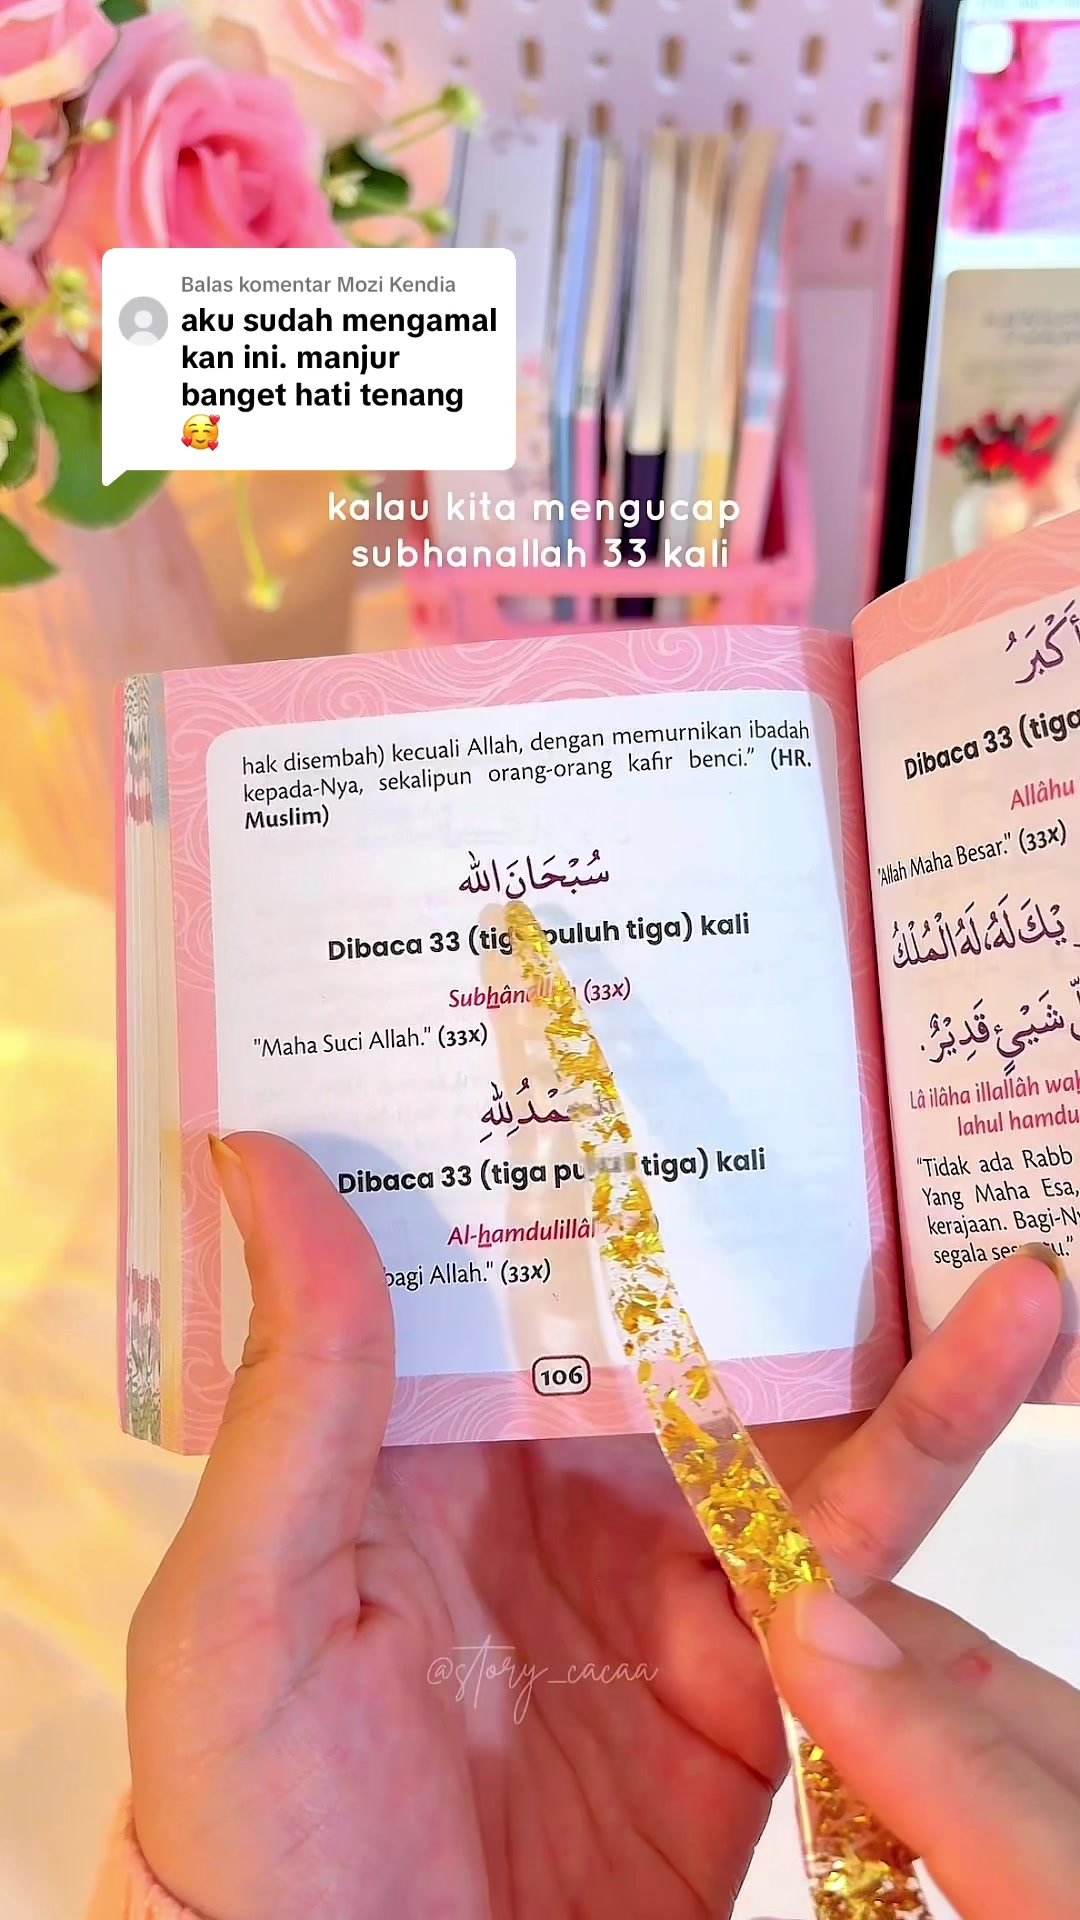 Balas komentar Mozi Kendia
aku sudah mengamal
kan ini. manjur
banget hati tenang
🥰
kalau kita mengucap
subhanallah 33 kali
hak disembah) kecuali Allah, dengan memurnikan ibadah
kepada-Nya, sekalipun orang-orang kafir benci.” (HR.
Muslim)
سُبْحَانَ الله
Dibaca 33 (tig puluh tiga) kali
Subhân (33x)
"Maha Suci Allah." (33x)
Dibaca 33 (tiga pu tiga) kali
Al-hamdulillâ
bagi Allah." (33x)
106
أَكْبَرُ
Dibaca 33 (tiga
Allâhu
"Allah Maha Besar." (33x)
يْكَ لَهُ، لَهُ الْمُلْكُ
شَيْئٍ قَدِيْرٌ.
Lâ ilâha illallâh wah
lahul hamdu
“Tidak ada Rabb
Yang Maha Esa,
kerajaan. Bagi-Ny
segala ses u.”
@story_cacaa